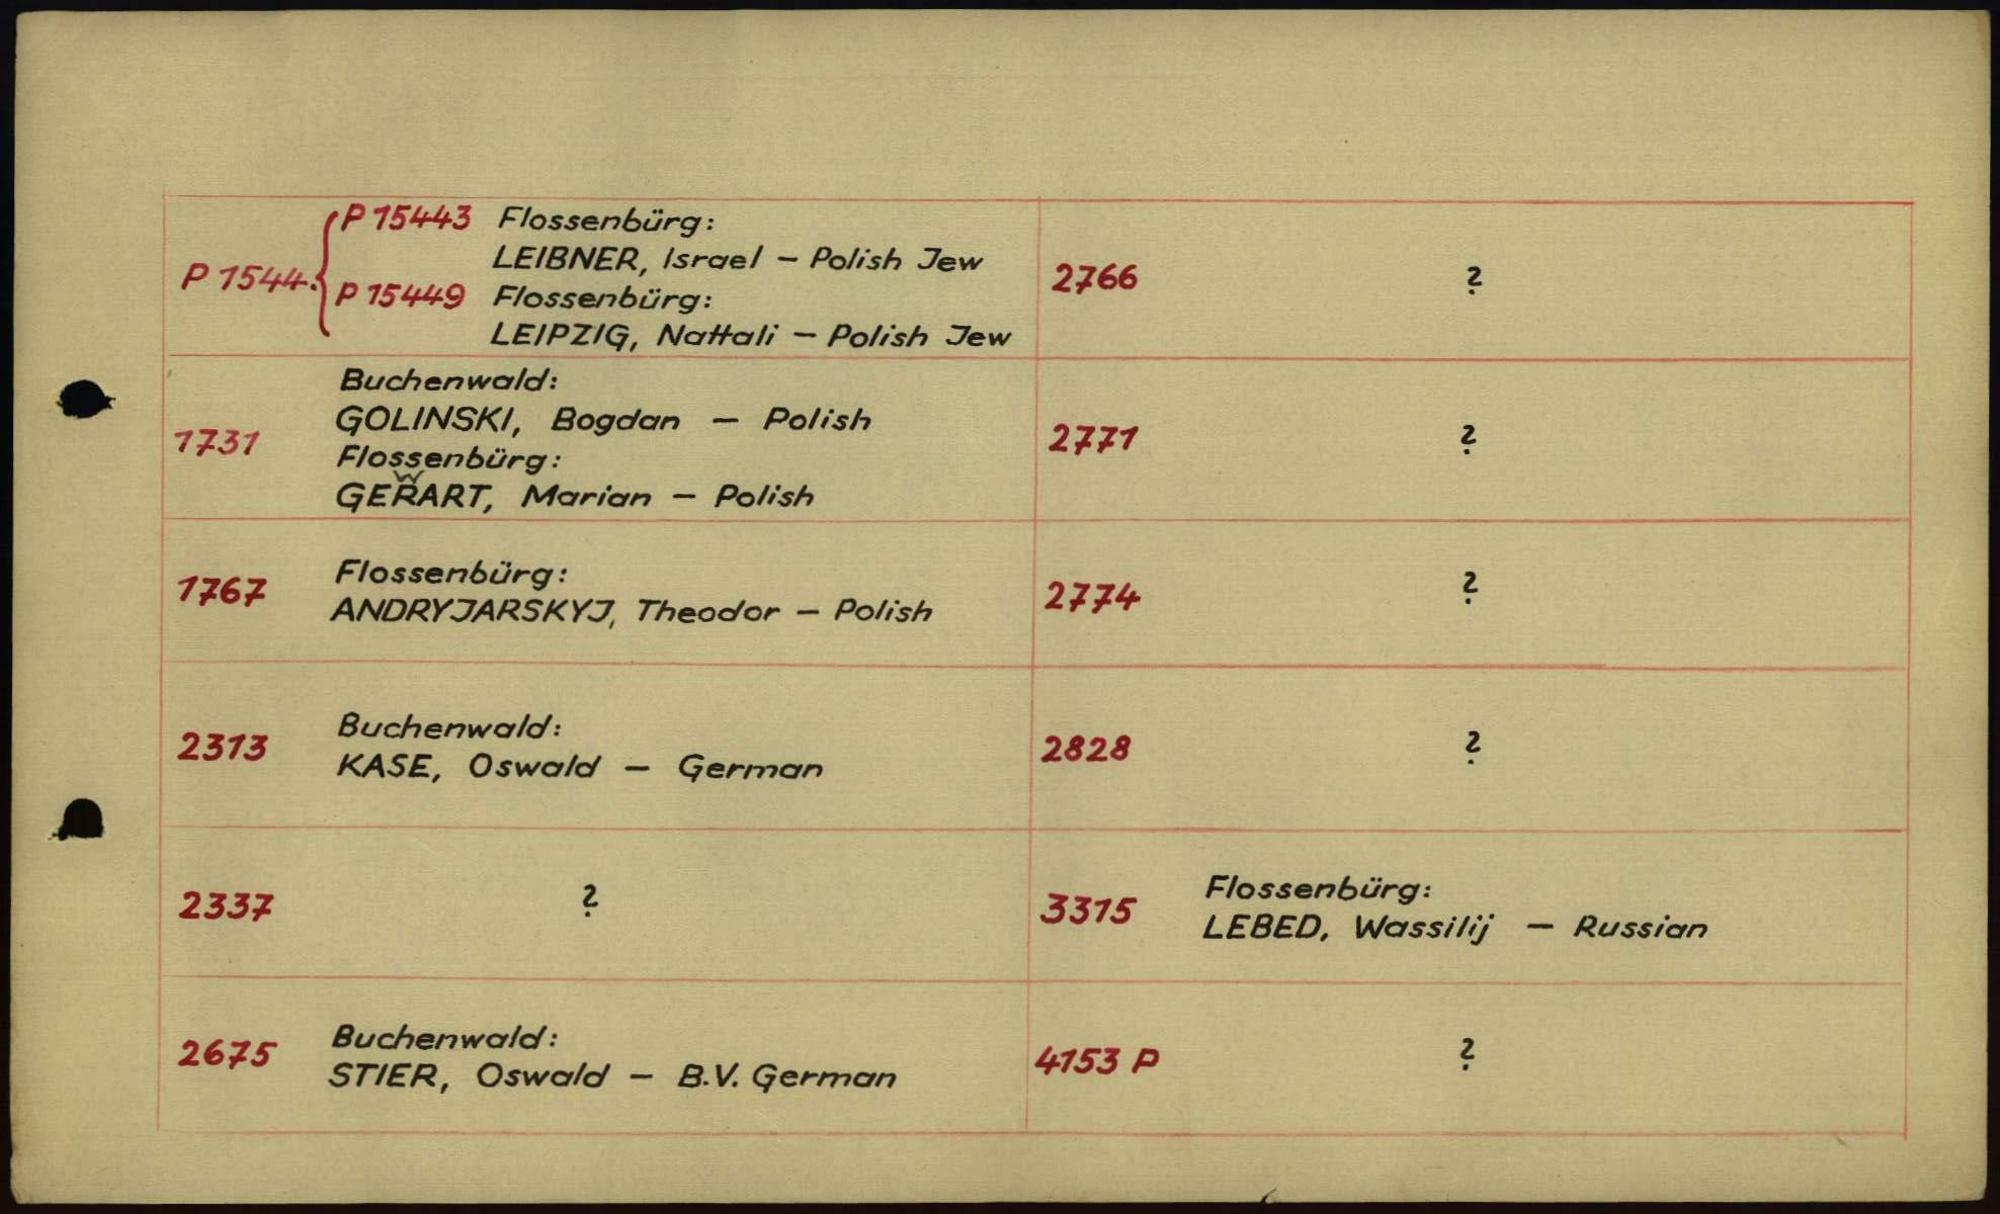 P 1544. { P 15443 Flossenbürg:
LEIBNER, Israel – Polish Jew
P 15449 Flossenbürg:
LEIPZIG, Nattali – Polish Jew
1731 Buchenwald:
GOLINSKI, Bogdan – Polish
Flossenbürg:
W
GERART, Marian – Polish
1767 Flossenbürg:
ANDRYJARSKYJ, Theodor – Polish
2313 Buchenwald:
KASE, Oswald – German
2337 ?
2675 Buchenwald:
STIER, Oswald – B.V. German
2766 ?
2771 ?
2774 ?
2828 ?
3315 Flossenbürg:
LEBED, Wassilij – Russian
4153 P ?